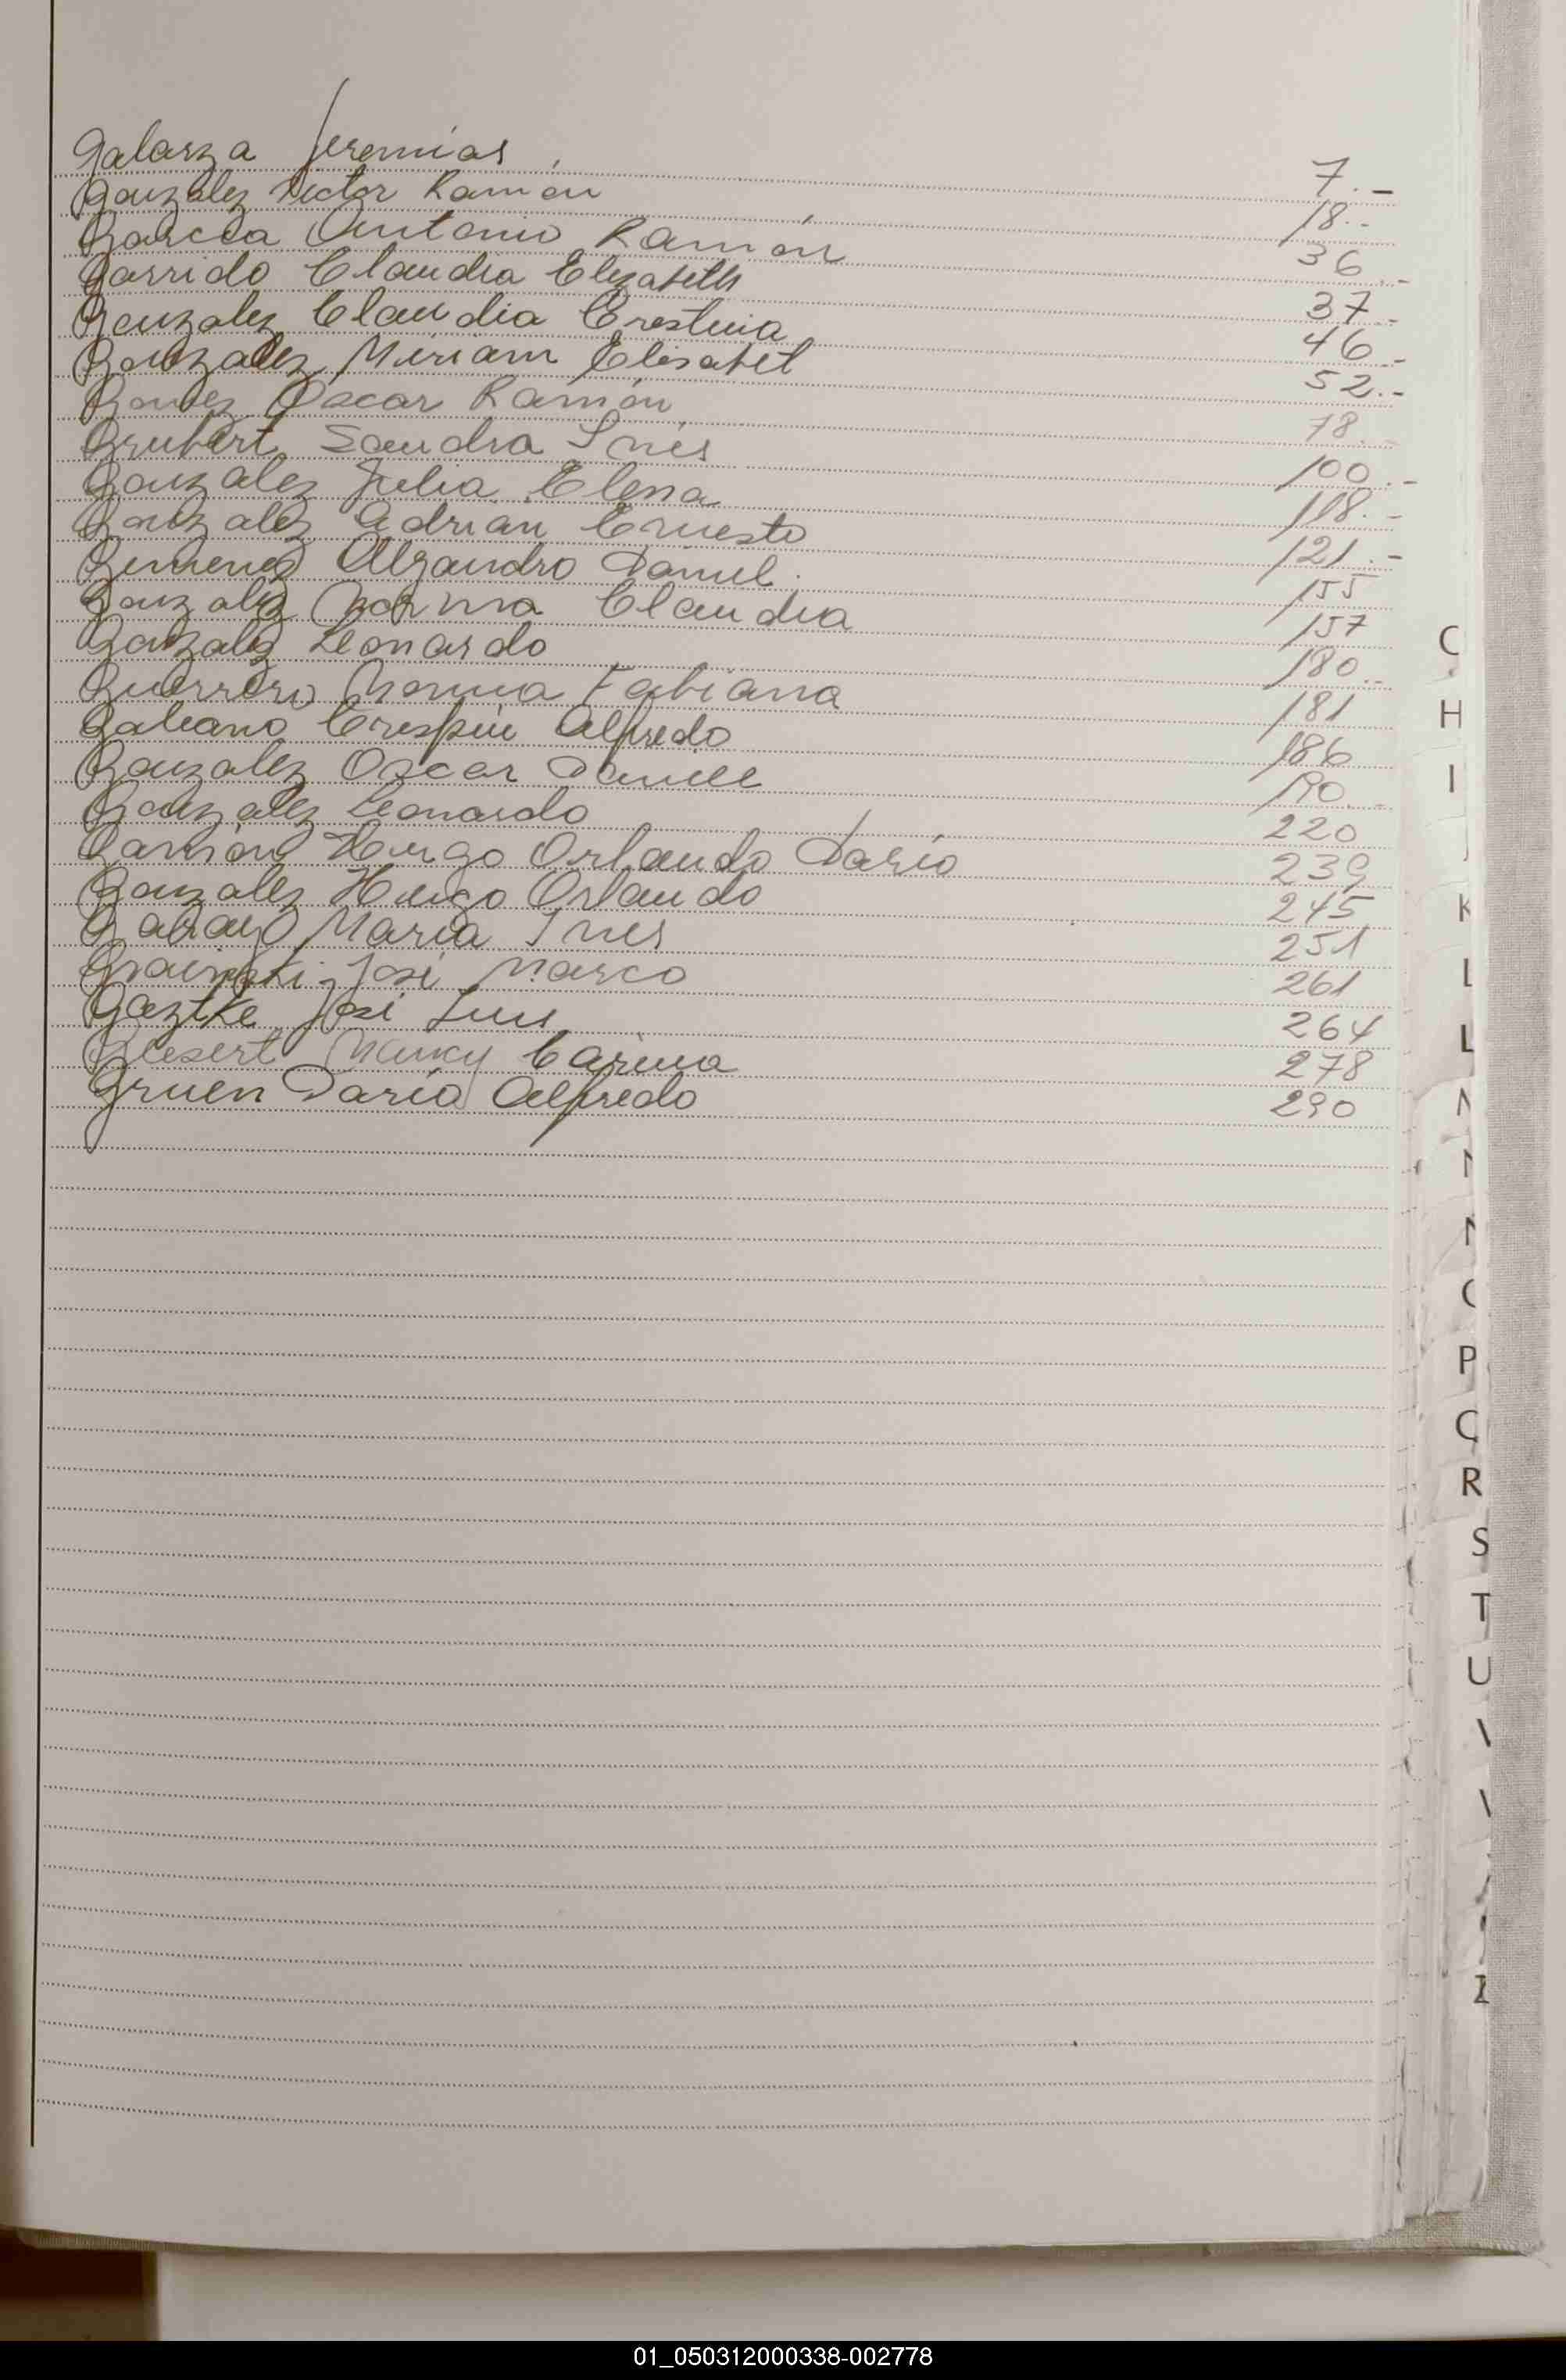 Galarza Jeremias 7.-
Gonzalez Hector Ramón 18.-
Garcia Antonio Ramón 36.-
Garrido Claudia Elizabeth 37.-
Gonzalez Claudia Cristina 46.-
Gonzalez Miriam Elisabet 52.-
Gomez Oscar Ramón 78.-
Grubert Sandra Inés 100.-
Gonzalez Julia Elena 118.-
Gonzalez Adrian Ernesto 121.-
Gimenez Alejandro Daniel 155
Gonzalez Norma Claudia 157
Gonzalez Leonardo 180.-
Guerrero Norma Fabiana 181
Galeano Crespin Alfredo 186
Gonzalez Oscar Daniel 190.-
Gonzalez Leonardo 220
Hugo Orlando Darío 239
Gonzalez Hugo Orlando 245
Garay Maria Ines 251
José Marco 261
José Luis 264
Nancy Carina 278
Gruen Darío Alfredo 290
C
H
I
J
K
L
L
M
N
P
R
S
T
U
V
Z
01_050312000338-002778